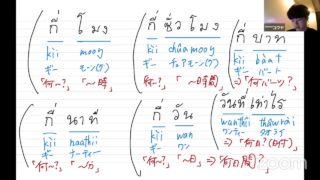 กี่ โมง
kìi mooŋ
ギー モーン(グ)
「何~?」「~時」
กี่ ชั่วโมง
kìi chûamooŋ
ギー チュアモーン(グ)
「何~?」「~時間」
กี่ บาท
kìi bàat
ギー バート
⇒「何バーツ?」
กี่ นาที
kìi naathii
ギー ナーティー
「何~?」「~分」
กี่ วัน
kìi wan
ギー ワン
「何~?」「~日」⇒「何日間?」
วันที่ เท่าไร
wanthîi thâwrài
ワンティー タオライ
⇒「何日?(日付)」
zoom